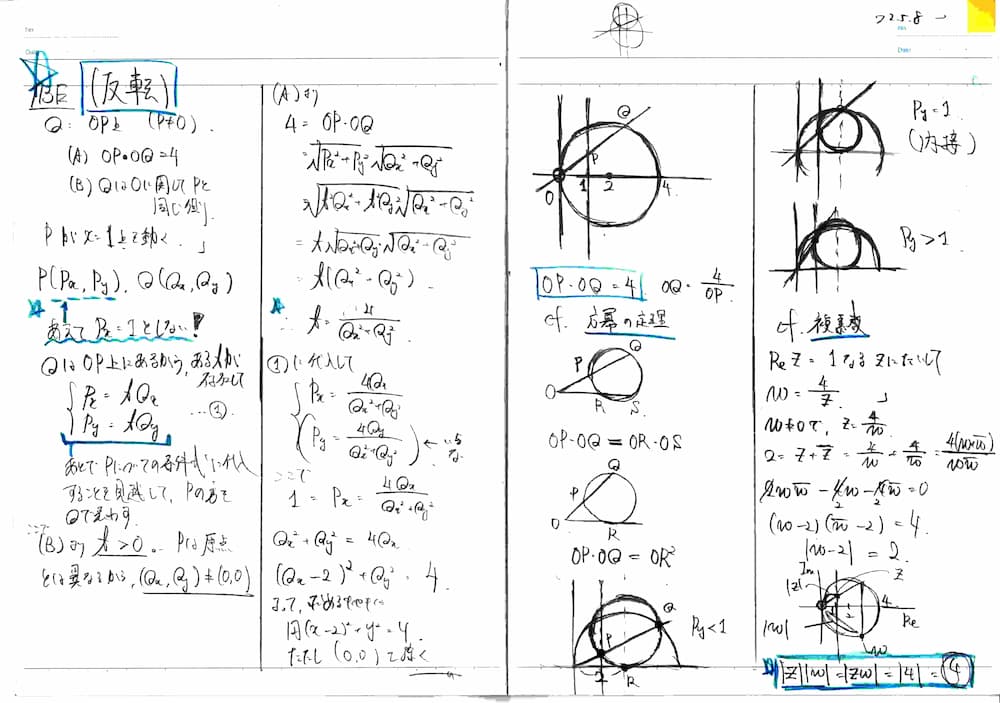 (反転)
Q: OP上 (P≠0).
(A) OP・OQ=4
(B) QはOに関してPと
同じ側」
Pがx=1上を動く.」
P(Px, Py), Q(Qx, Qy)
あえてPx=1としない!
QはOP上にあるから, ある tが
存在して
Px = tQx
Py = tQy …①
あとでPについての条件式に代入
することを見越して, Pの方を
Qで表わす.
ここで
(B)より t>0. Pは原点
とは異なるから, (Qx, Qy)≠(0,0)
(A)より
4 = OP・OQ
= √Px²+Py² √Qx²+Qy²
= √t²Qx²+t²Qy² √Qx²+Qy²
= t√Qx²+Qy²・√Qx²+Qy²
= t(Qx²+Qy²).
∴ t = 4/(Qx²+Qy²)
①に代入して
Px = 4Qx/(Qx²+Qy²)
(Py = 4Qy/(Qx²+Qy²)) ←
ここで
1 = Px = 4Qx/(Qx²+Qy²)
Qx²+Qy² = 4Qx
(Qx-2)²+Qy² = 4.
よって, 求める
円(x-2)²+y²=4.
ただし (0,0)を除く
'25.8
Q
P
O 1 2 4
OP・OQ=4 OQ=4/OP.
cf. 方冪の定理
P Q
O R S
OP・OQ=OR・OS
Q
P
O R
OP・OQ=OR²
P Q Py<1
2 R
Py=1.
(内接)
Py>1.
cf. 複素数
Re z = 1 なる zにたいして
w = 4/z. 」
w≠0で, z=4/w.
2 = z+z̄ = 4/w + 4/w̄ = 4(w+w̄)/ww̄
2ww̄-4w-4w̄=0
(w-2)(w̄-2)=4.
|w-2|=2.
Im
|z| z
4
Re
|w| w
|z||w|=|zw|=|4|=4